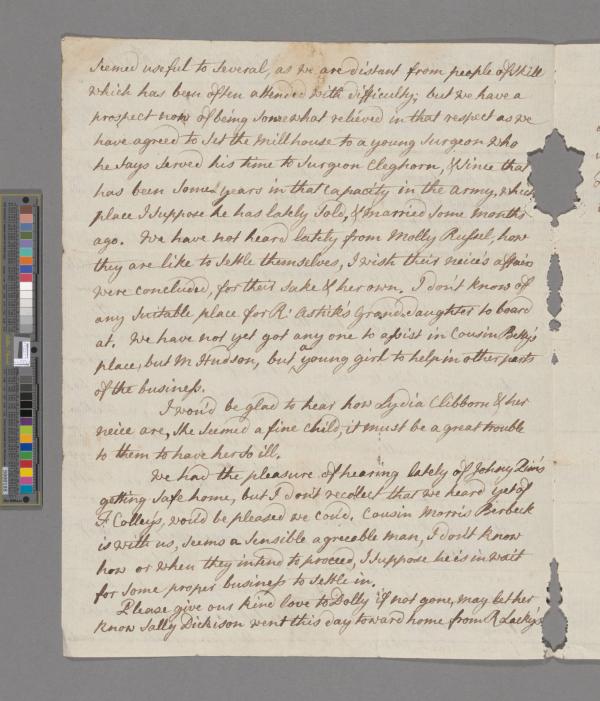 seemed useful to several, as we are distant from people of skill
which has been often attended with difficulty; but we have a
prospect now of being somewhat relieved in that respect as we
have agreed to set the Millhouse to a young Surgeon who
he says served his time to Surgeon Cleghorn, & since that
has been some years in that Capacity in the Army, which
place I suppose he has lately sold, & married some months
ago. We have not heard lately from Molly Russel, how
they are like to settle themselves, I wish their neice's affairs
were concluded, for their sake & her own. I don't know of
any suitable place for Rt. Grand-daughter to board
at. We have not yet got any one to assist in Cousin Betty's
place, but M. Hudson, but a young girl to help in other parts
of the business.
I wou'd be glad to hear how Lydia Clibborn & her
neice are, she seemed a fine child, it must be a great trouble
to them to have her so ill.
We had the pleasure of hearing lately of Johny
getting safe home, but I don't recollect that we heard yet of
F. Colley's, wou'd be pleased we cou'd. Cousin Morris Birbeck
is with us, seems a sensible agreeable man, I don't know
how or when they intend to proceed, I suppose he is in wait
for some proper business to settle in.
Please give our kind love to Dolly if not gone, may let her
know Sally Dickison went this day toward home from R Lackys